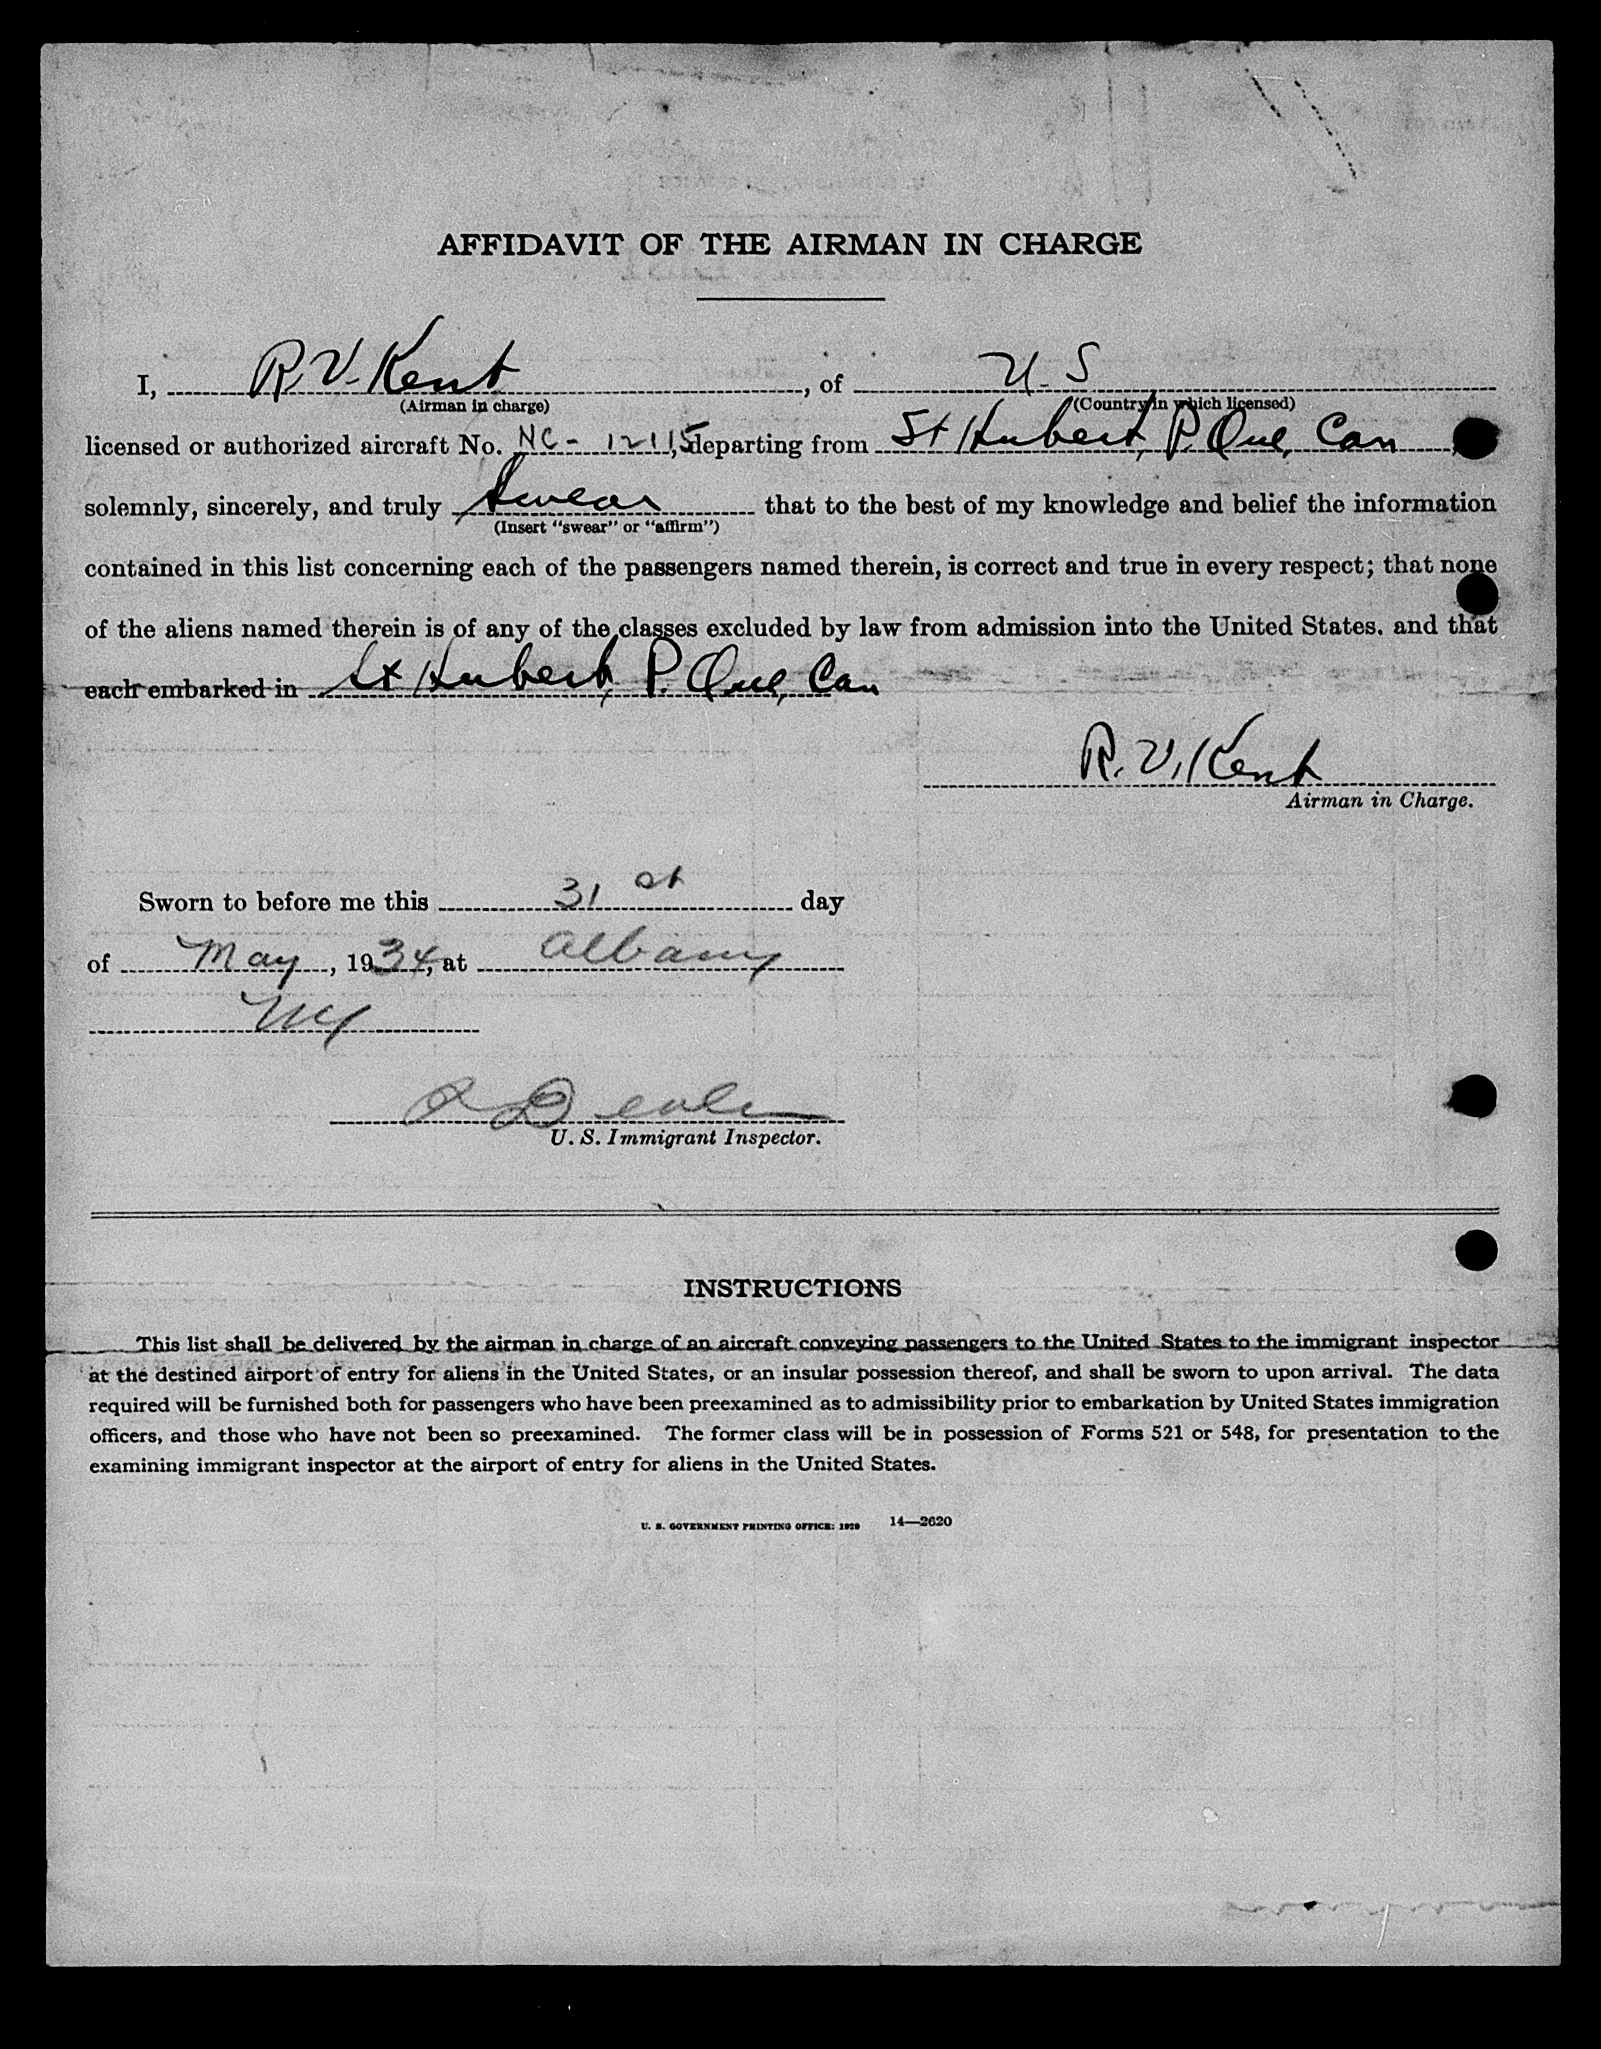 AFFIDAVIT OF THE AIRMAN IN CHARGE
I, R. V. Kent, of U. S
(Airman in charge) (Country in which licensed)
licensed or authorized aircraft No. NC - 12115, departing from St Hubert, P. Que, Can,
solemnly, sincerely, and truly swear that to the best of my knowledge and belief the information
(Insert "swear" or "affirm")
contained in this list concerning each of the passengers named therein, is correct and true in every respect; that none
of the aliens named therein is of any of the classes excluded by law from admission into the United States. and that
each embarked in St Hubert, P. Que, Can
R. V. Kent
Airman in Charge.
Sworn to before me this 31st day
of May, 1934, at Albany
NY
U. S. Immigrant Inspector.
INSTRUCTIONS
This list shall be delivered by the airman in charge of an aircraft conveying passengers to the United States to the immigrant inspector
at the destined airport of entry for aliens in the United States, or an insular possession thereof, and shall be sworn to upon arrival. The data
required will be furnished both for passengers who have been preexamined as to admissibility prior to embarkation by United States immigration
officers, and those who have not been so preexamined. The former class will be in possession of Forms 521 or 548, for presentation to the
examining immigrant inspector at the airport of entry for aliens in the United States.
U. S. GOVERNMENT PRINTING OFFICE: 1929 14—2620